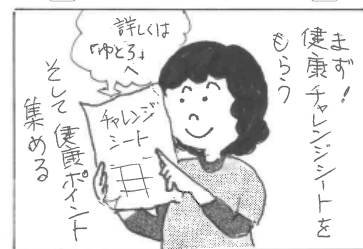 まず!
健康チャレンジシートを
もらう
詳しくは
「ゆとろ」
へ
チャレンジ
シート
そして健康ポイント
集める